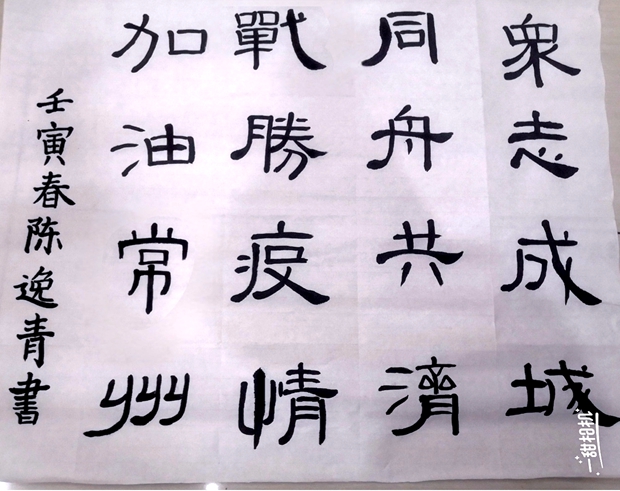 衆志成城
同舟共濟
戰勝疫情
加油常州
壬寅春陈逸青書
一甜相机